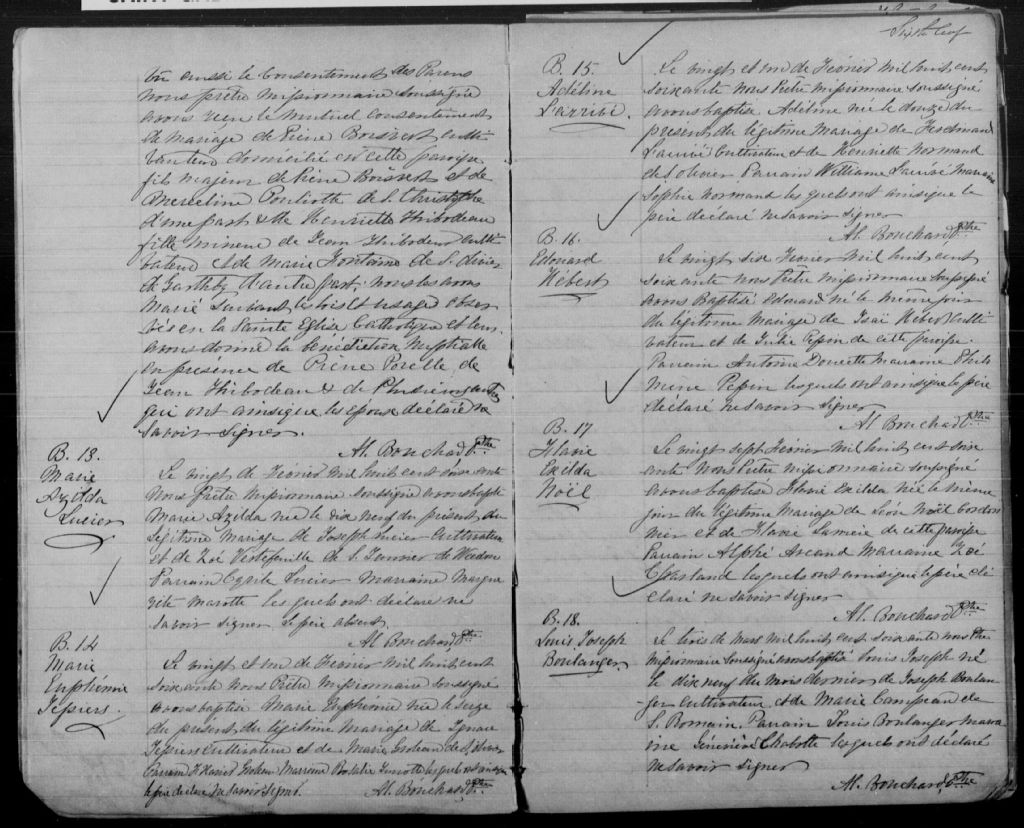 vu aussi le Consentement des Parens
nous prêtre missionnaire soussigné
avons reçu le mutuel consentement
de mariage de Pière Boisvert culti
vateur domicilié en cette paroisse
fils majeur de Pière Boisvert et de
Merceline Pouliotte de S. Christophe
d'une part & de Henriette Thibodeau
fille mineure de Jean Thibodeau culti
vateur et de Marie Fontaine de S. Olivier
de Garthby d'autre part, nous les avons
Marié suivant les lois et usages obser
vés en la Sainte Eglise Catholique et leur
avons donné la bénédiction Nuptialle
en présence de Pière
Jean Thibodeau & de Plusieurs autres
qui ont ainsi que les épous déclaré ne
savoir signer.
Al. Bouchard Ptre
B. 13.
Marie
Azilda
Lucier
Le vingt de Février mil huit cent soix ante
Nous Prêtre Missionnaire soussigné avons baptisé
Marie Azilda née le dix neuf du présent du
Légitime Mariage de Joseph Lucier Cultivateur
et de Zoé Vertefeuille de S. Janvier de Weedon
Parrain Cyrile Lucier Marraine Margue
rite Marotte les quels ont déclaré ne
savoir signer le père absent.
Al. Bouchard Ptre
B. 14
Marie
Euphémie
Tepiers.
Le vingt et un de Fevrier mil huit cent
soixante Nous Prêtre Missionnaire soussigné
avons baptisé Marie Euphemie née le seize
du présent du légitime mariage de Ignace
Tepiers Cultivateur et de Marie Groleau de S. Olivier
Parrain Groleau Marraine Rosalie les quels ont ainsi que
le père déclaré ne savoir signer. Al. Bouchard Ptre
Sixth leaf
B. 15.
Adéline
Larrivé.
Le vingt et un de Février mil huit cent
soixante Nous Prêtre missionnaire soussigné
avons baptisé Adéline née le douze du
présent du légitime Mariage de Ferdinand
Larrivé Cultivateur et de Henriette Normand
de S. Olivier Parrain Williame Larrivé Marraine
Sophie Normand les quels ont ainsi que le
père déclaré ne savoir signer
Al. Bouchard Ptre
B. 16.
Edouard
Hébert
Le vingt six Fevrier mil huit cent
soixante nous Prêtre missionnaire soussigné
avons Baptisé Edouard né le même jour
du légitime Mariage de Isaï Hébert Culti
vateur et de Julie Pepin de cette paroisse.
Parrain Antoine Doucette Marraine Philo
mène Pepin lesquels ont ainsi que le père
déclaré ne savoir signer
Al. Bouchard Ptre
B. 17
Flavie
Exilda
Noël
Le vingt sept Fevrier mil huit cent soix
ante Nous Prêtre missionnaire soussigné
avons baptisé Flavie Exilda née le même
jour du légitime Mariage de Léon Noël Cordon
nier et de Flavie de cette paroisse
Parrain Alphé Arcand Marraine Zoé
lesquels ont ainsi que le père dé
claré ne savoir signer
Al. Bouchard Ptre
B. 18.
Louis Joseph
Boulanger
Le trois de Mars mil huit cent soixante nous Ptre
missionnaire soussigné avons baptisé Louis Joseph né
le dix neuf du mois dernier de Joseph Boulan
ger Cultivateur et de Marie Campeau de
S. Romain. Parrain Louis Boulanger marra
ine Généviève Chabotte lesquels ont déclaré
ne savoir signer
Al. Bouchard, Ptre